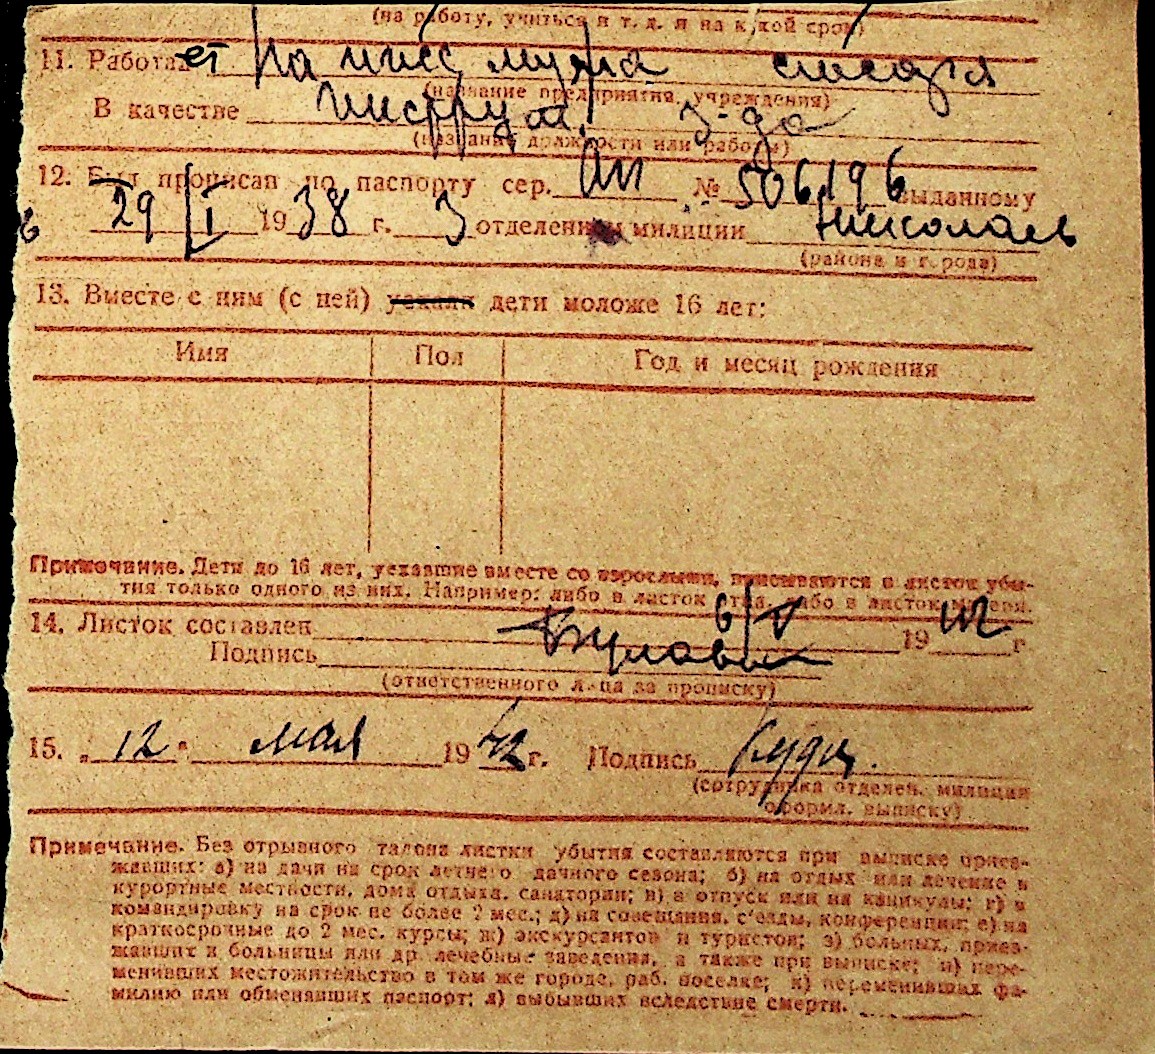 (на работу, учиться и т. д. и на какой срок)
11. Работает На ижд. мужа слесаря
(название предприятия, учреждения)
В качестве з-да
(название должности или работы)
12. Был прописан по паспорту сер. № 506196 выданному
29/I 1938 г. 3 отделением милиции Николаев
(района и города)
13. Вместе с ним (с ней) уехали дети моложе 16 лет:
Имя Пол Год и месяц рождения
Примечание. Дети до 16 лет, уехавшие вместе со взрослыми, вписываются в листок убы-
тия только одного из них. Например: либо в листок отца, либо в листок матери.
14. Листок составлен 6/V 1942 г
Подпись
(ответственного лица за прописку)
15. „12" мая 1942 г. Подпись
(сотрудника отделен. милиции
оформл. выписку)
Примечание. Без отрывного талона листки убытия составляются при выписке приез-
жавших: а) на дачи на срок летнего дачного сезона; б) на отдых или лечение в
курортные местности, дома отдыха, санатории; в) в отпуск или на каникулы; г) в
командировку на срок не более 2 мес.; д) на совещания, с'езды, конференции; е) на
краткосрочные до 2 мес. курсы; ж) экскурсантов и туристов; з) больных, приез-
жавших в больницы или др. лечебные заведения, а также при выписке; и) пере-
менивших местожительство в том же городе, раб. поселке; к) переменивших фа-
милию или обменявших паспорт; л) выбывших вследствие смерти.